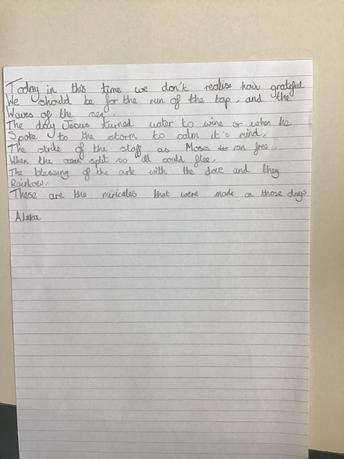 Today in this time we don't realise how grateful
We should be for the run of the tap, and the
Waves of the sea.
The day Jesus turned water to wine or when he
Spoke to the storm to calm it's mind.
The stride of the staff as Moses ran free.
When the split so all could flee.
The blessing of the ark with the dove and they
Rainbow.
These are the miricales that were made on those days